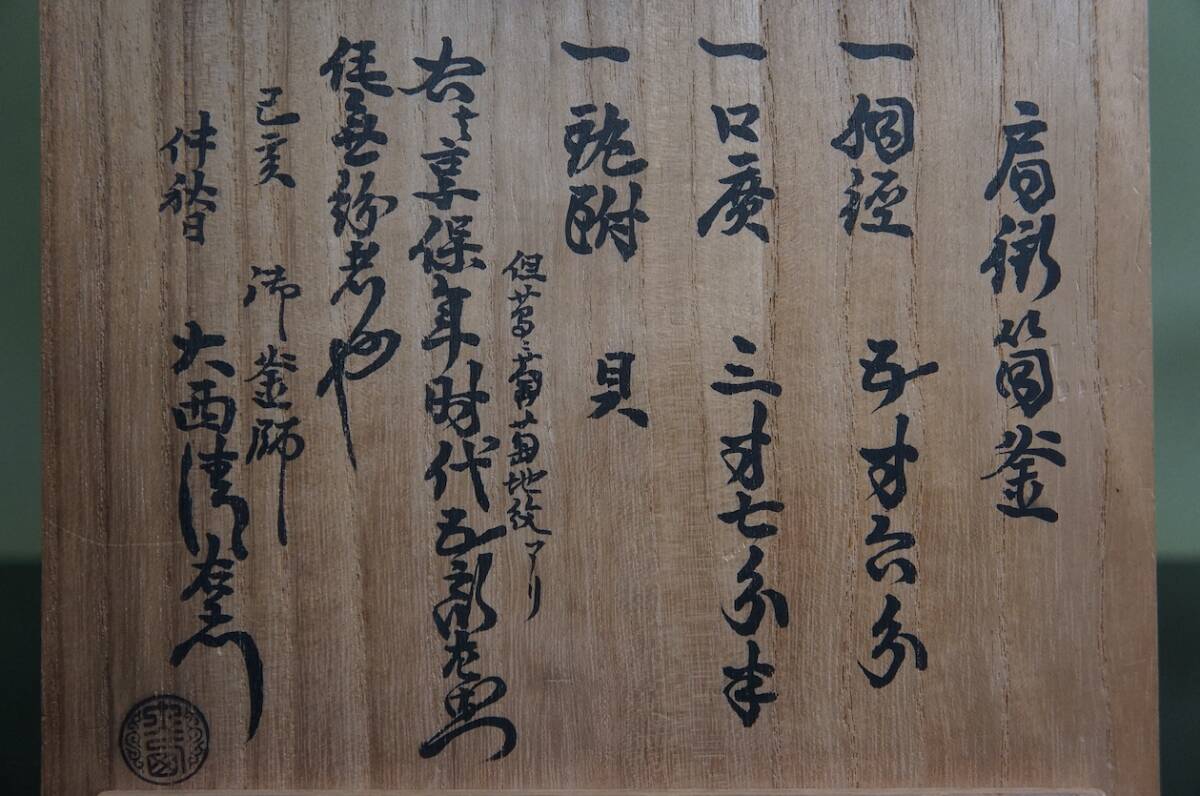 肩衝筒釜
一胴径 五寸六分
一口廣 三寸七分半
一鐶附 貝
但蔦ニ葡萄地紋アリ
右者享保年時代五郎左衛門
作無紛者也
己亥 御釜師
仲秋日 大西清右衛門